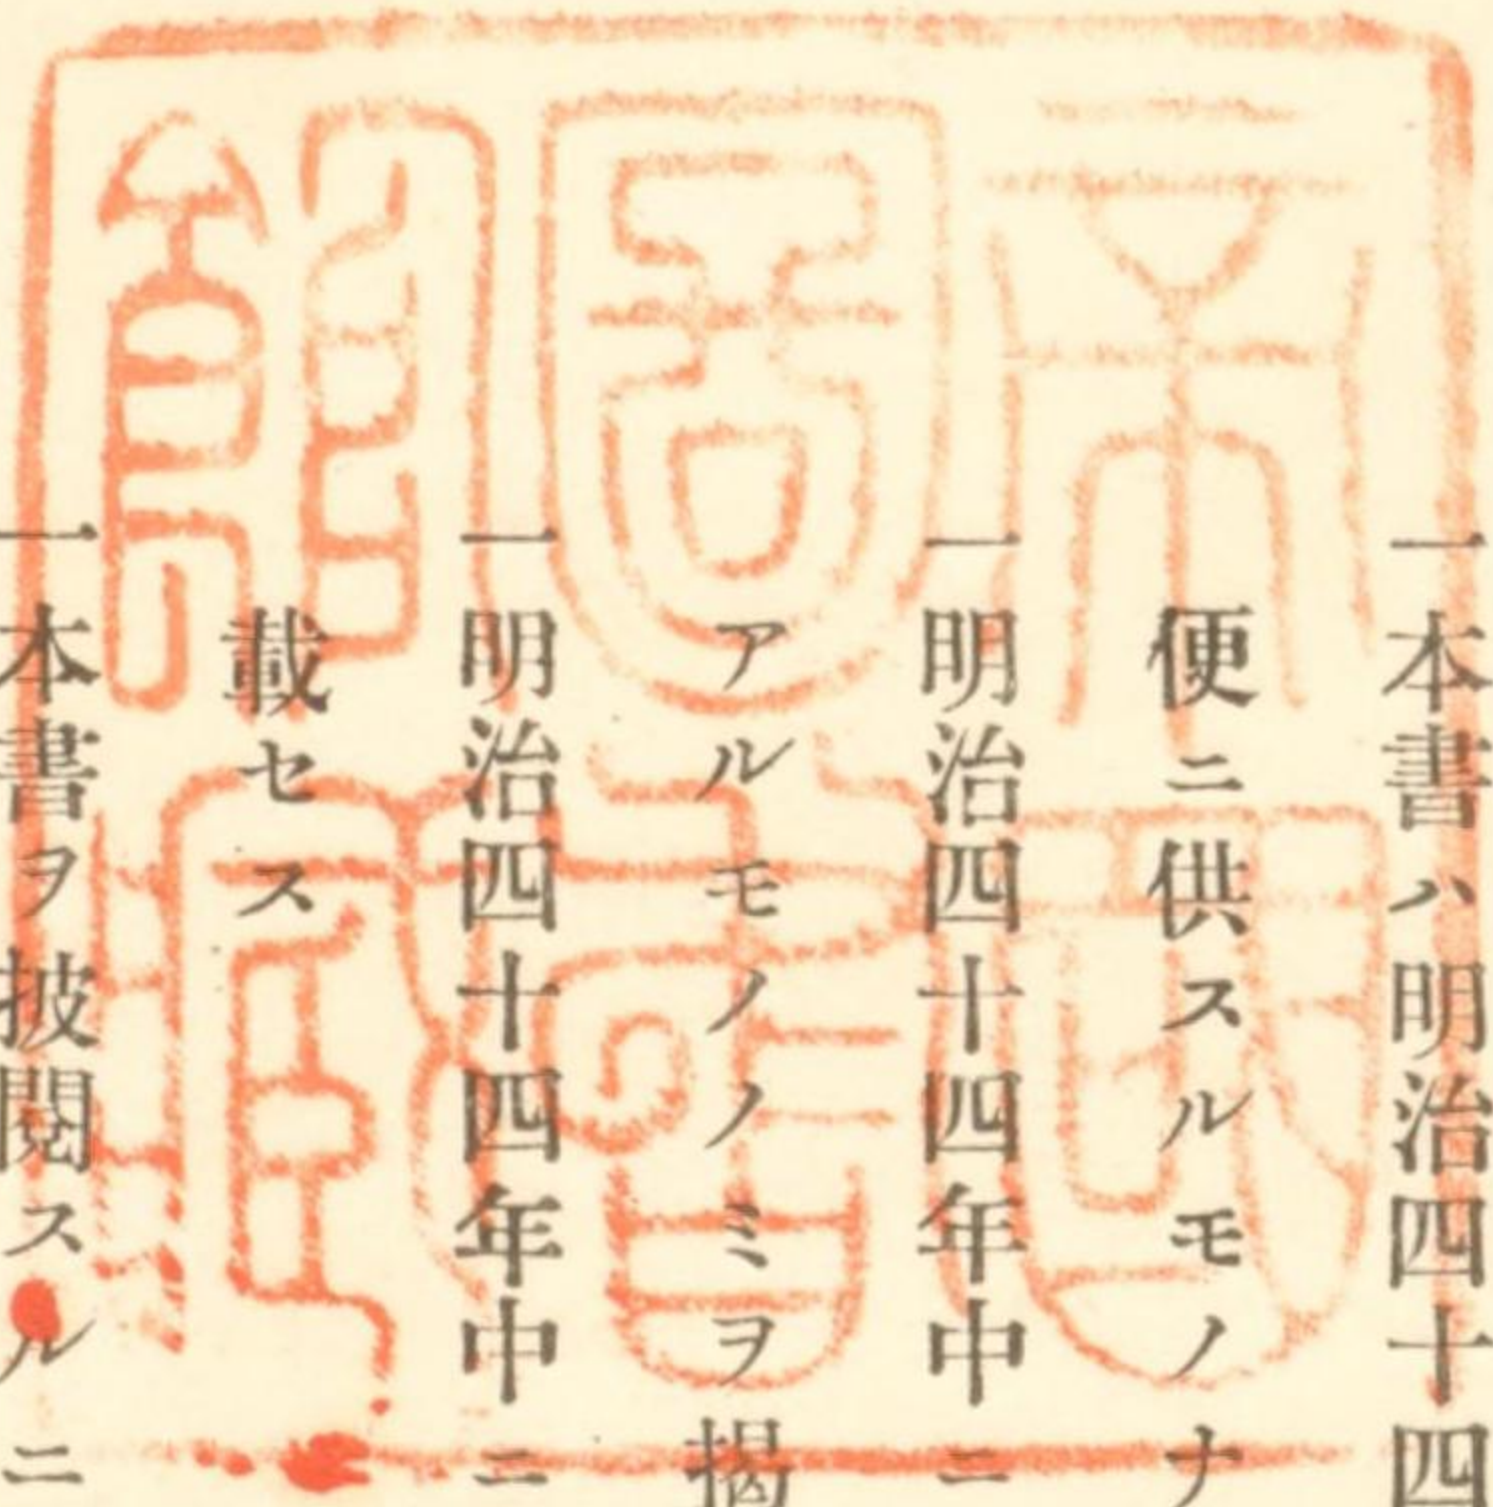 一本書ハ明治四十四
便ニ供スルモノナ
一明治四十四年中ニ
アルモノノミヲ掲
一明治四十四年中ニ
載セス
一本書ヲ披閱スルニ
帝國
圖書
館藏